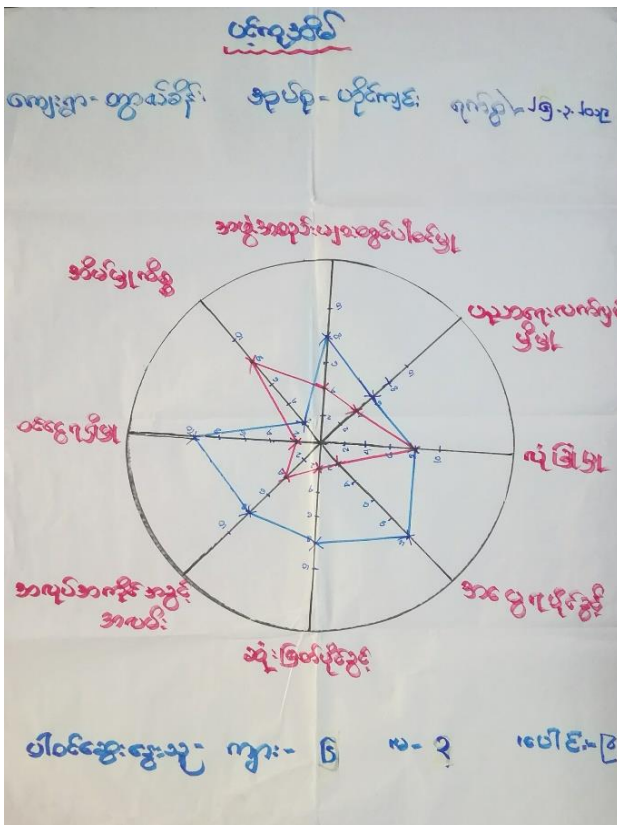 ပင့်ကူအိမ်
ကျေးရွာ - တွာယ်ခိန်း အုပ်စု - ဟိုင်ကျင်း ရက်စွဲ =
အဖွဲ့အစည်းများတွင်ပါဝင်မှု
အိမ်မှုကိစ္စ
ပညာရေးလက်လှမ်း
မှီမှု
ဝင်ငွေရရှိမှု
လုံခြုံမှု
အလုပ်အကိုင်အခွင့်
အလမ်း
အမွေရပိုင်ခွင့်
ဆုံးဖြတ်ပိုင်ခွင့်
ပါဝင်ဆွေးနွေးသူ - ကျား - ၆ မ - ၃ ပေါင်း -